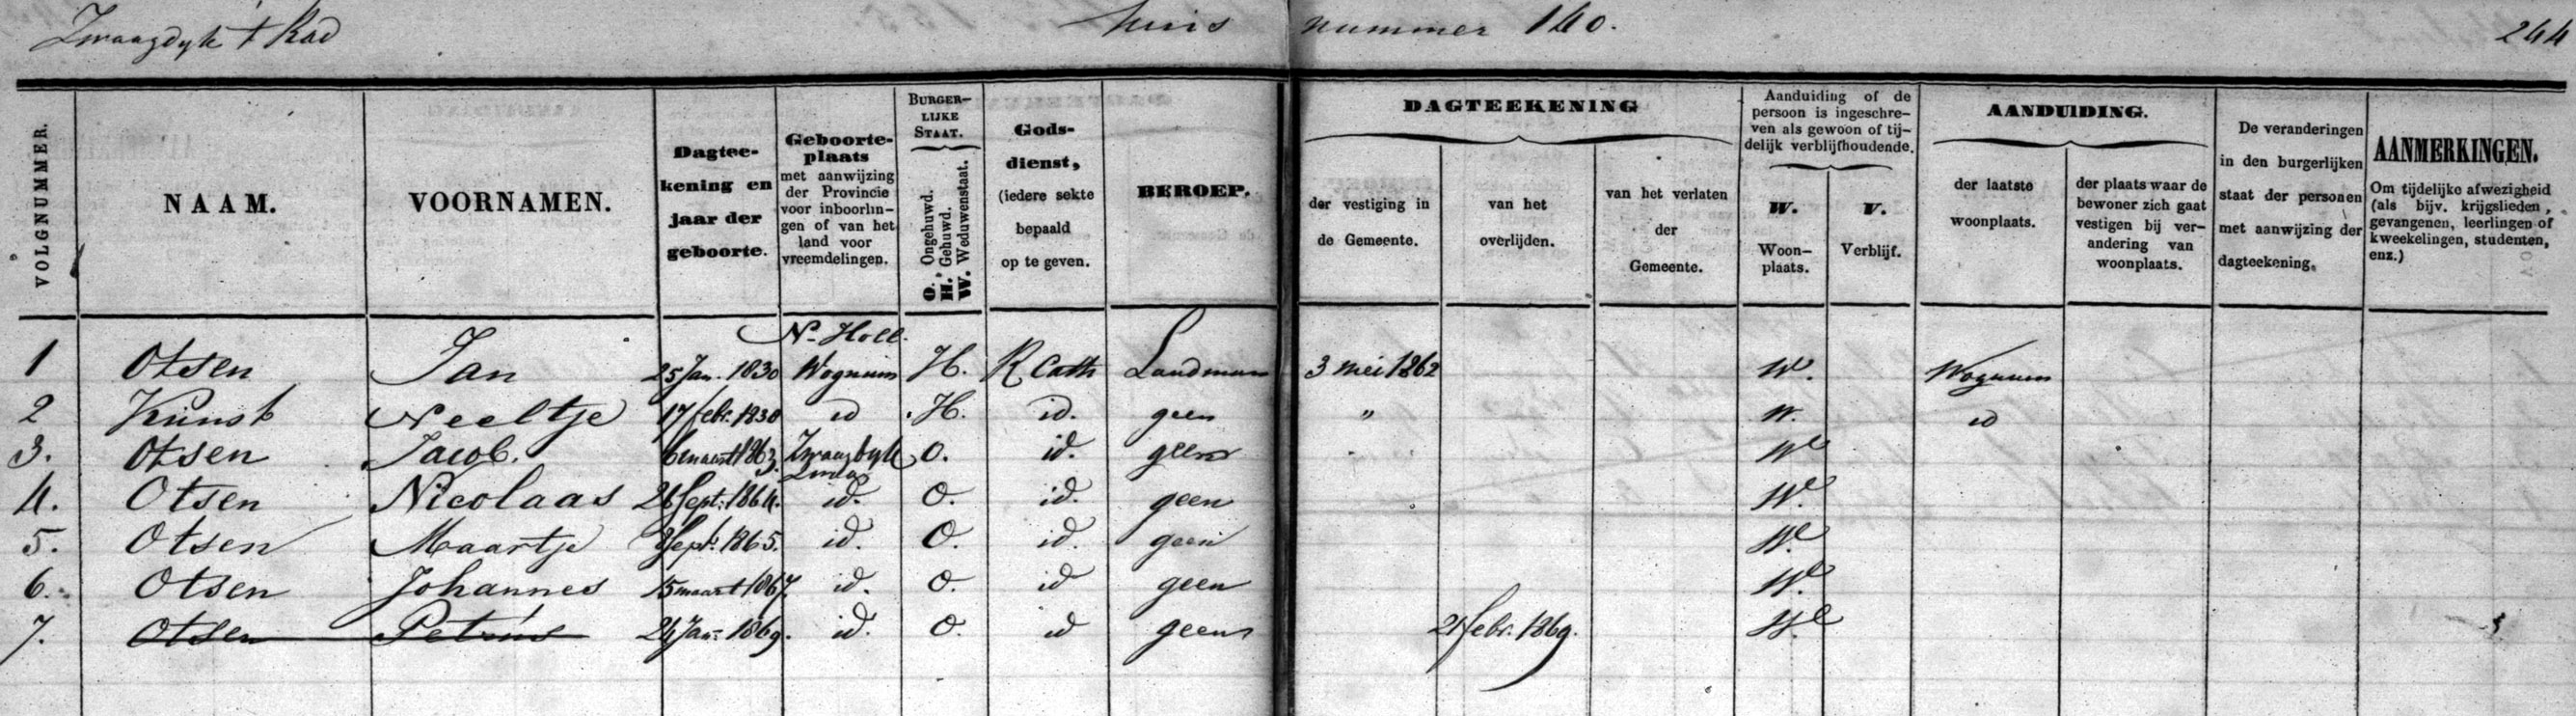 Zwaagdyk 't Rad huis nummer 140. 244
VOLGNUMMER.
NAAM.
VOORNAMEN.
Dagtee-
kening en
jaar der
geboorte.
Geboorte-
plaats
met aanwijzing
der Provincie
voor inboorlin-
gen of van het
land voor
vreemdelingen.
BURGER-
LIJKE
STAAT.
O. Ongehuwd.
H. Gehuwd.
W. Weduwenstaat.
Gods-
dienst,
(iedere sekte
bepaald
op te geven.
BEROEP.
DAGTEEKENING
der vestiging in
de Gemeente.
van het
overlijden.
van het verlaten
der
Gemeente.
Aanduiding of de
persoon is ingeschre-
ven als gewoon of tij-
delijk verblijfhoudende.
W.
Woon-
plaats.
V.
Verblijf.
AANDUIDING.
der laatste
woonplaats.
der plaats waar de
bewoner zich gaat
vestigen bij ver-
andering van
woonplaats.
De veranderingen
in den burgerlijken
staat der personen
met aanwijzing der
dagteekening.
AANMERKINGEN.
Om tijdelijke afwezigheid
(als bijv. krijgslieden,
gevangenen, leerlingen of
kweekelingen, studenten,
enz.)
N. Holl.
1 Otsen Jan 25 Jan. 1830 Wognum H. R Cath Landman 3 mei 1862 W. Wognum
2 Kunst Neeltje 17 febr. 1830 id H. id. geen " W. id
3. Otsen Jacob. 6 maart 1863. Zwaagdyk O. id. geen W
4. Otsen Nicolaas 26 Sept. 1864. id. O. id. geen W.
5. Otsen Maartje 8 Sept. 1865. id. O. id. geen W.
6. Otsen Johannes 15 maart 1867. id. O. id geen W.
7. Otsen Petrus 24 Jan. 1869. id. O. id geen 21 febr. 1869. W.